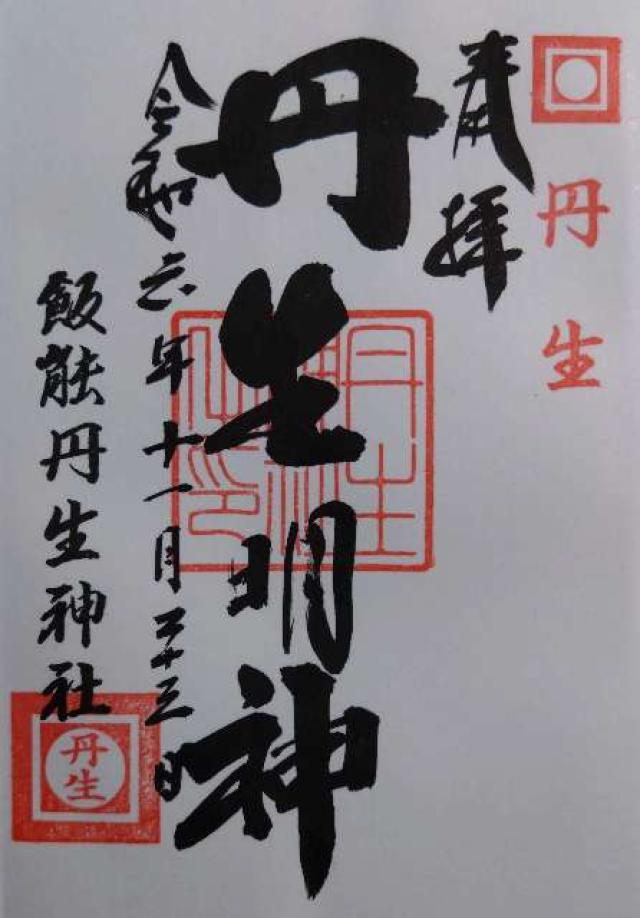 丹生
奉拝
丹生明神
令和六年十一月二十三日
飯能丹生神社
丹生